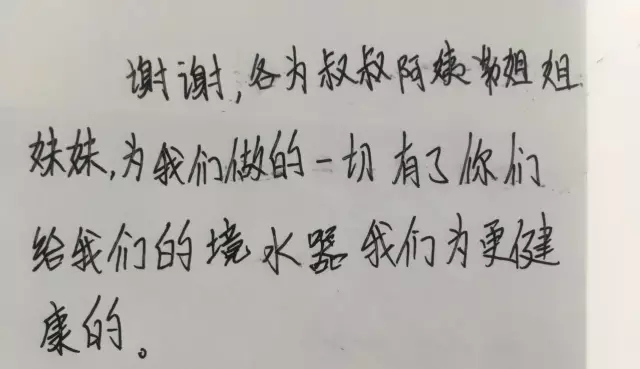 谢谢,各为叔叔阿姨弟姐姐
妹妹,为我们做的一切有了你们
给我们的境水器我们为更健
康的。